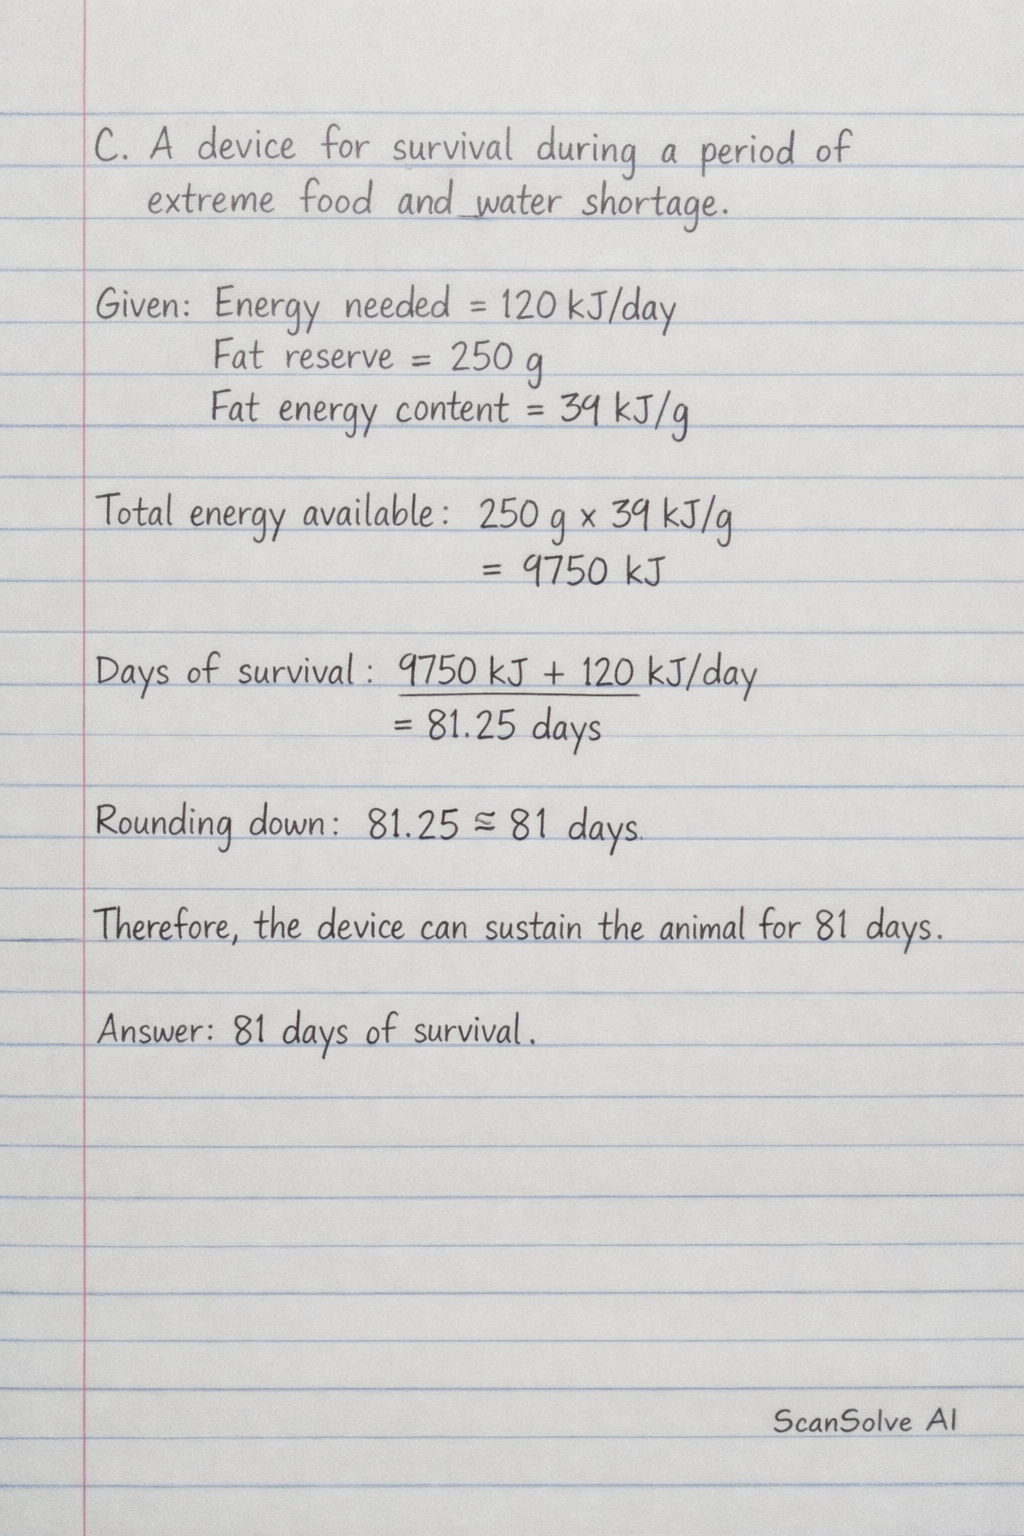 C. A device for survival during a period of
extreme food and water shortage.
Given: Energy needed = 120 kJ/day
Fat reserve = 250 g
Fat energy content = 39 kJ/g
Total energy available: 250 g x 39 kJ/g
= 9750 kJ
Days of survival: 9750 kJ + 120 kJ/day
= 81.25 days
Rounding down: 81.25 ≅ 81 days.
Therefore, the device can sustain the animal for 81 days.
Answer: 81 days of survival.
ScanSolve AI